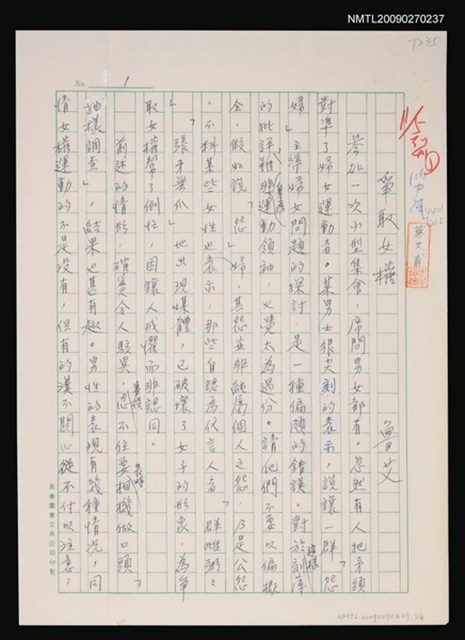 NMTL20090270237
T235
No. 1
爭取女權
魯艾
參加一次小型集會，席間男女都有。忽然有人把矛頭
對準了婦女運動者。某男士很尖刻的表示，說讓一群「怨
婦」主導婦女問題的探討，是一種偏頗的錯誤。對於
的批評，運動領袖，必覺太為過份。請他們不要以偏概
全，假如說「怨」婦，其怨並非純屬個人之怨，乃是公怨
。不料某些女性也表示，那些自認為代言人者「群雌粥粥
」「張牙舞爪」地出現媒體，已破壞了女子的形象，為爭
取女權幫了倒忙，因讓人戒懼而非認同。
前述的情形，確實令人駭異，忍不住要相機做口頭「
抽樣調查」，結果也甚有趣。男性的表現有幾種情況，同
情女權運動的不是沒有，但有的漠不關心從不付以注意，
長春圖書文具公司印製
NMTL20090270237